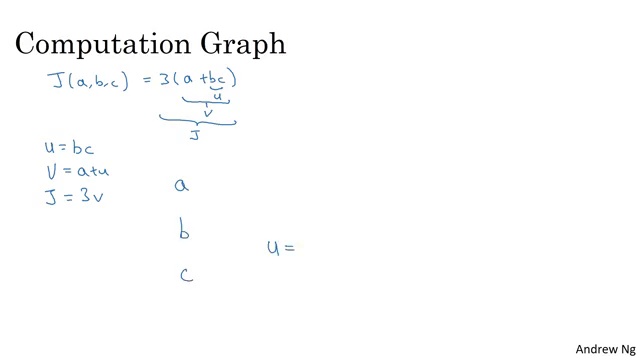 Computation Graph
J(a,b,c) = 3(a+bc)
u
v
J
u = bc
V = a+u
J = 3v
a
b
u =
c
Andrew Ng